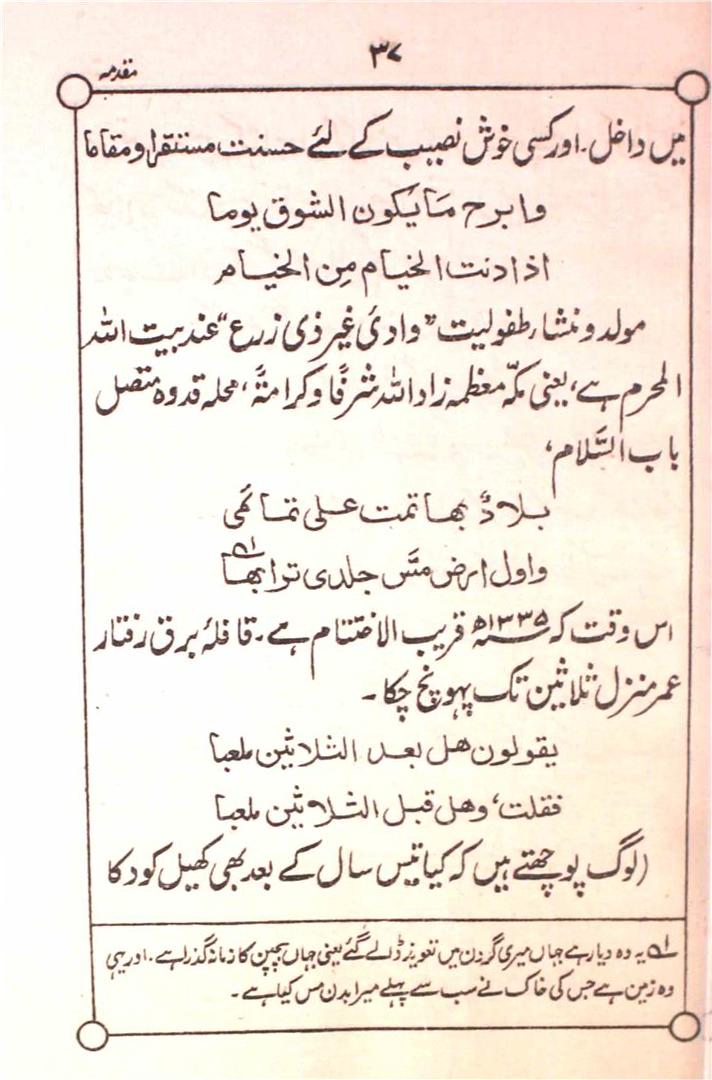 ۳۷
مقدمہ
میں داخل۔ اور کسی خوش نصیب کے لئے حسنت مستقرا و مقاما
وابرح مَا یَکون الشوق یوما
اذا دنت الخیام مِن الخیام
مولد و منشاء طفولیت "وادیٔ غیر ذی زرع" عند بیت اللہ
المحرم ہے، یعنی مکّہ معظمہ زاد اللہ شرفًا وکرامتًہ، محلہ قدوہ متصل
باب السَّلام،
بلادٌ بھا تمت علی تمائمی
واول ارض مسَّ جلدی ترابھا ؎۱
اس وقت کہ ۱۳۳۵ھ قریب الاختتام ہے۔ قافلۂ برق رفتار
عمر منزل ثلاثین تک پہونچ چکا۔
یقولون ھل بعد الثلاثین ملعبا
فقلت، وھل قبل الثلاثین ملعبا
(لوگ پوچھتے ہیں کہ کیا تیس سال کے بعد بھی کھیل کود کا
؎۱ یہ وہ دیار ہے جہاں میری گردن میں تعویذ ڈالے گئے یعنی جہاں بچپن کا زمانہ گذرا ہے۔ اور یہی
وہ زمین ہے جس کی خاک نے سب سے پہلے میرا بدن مس کیا ہے۔